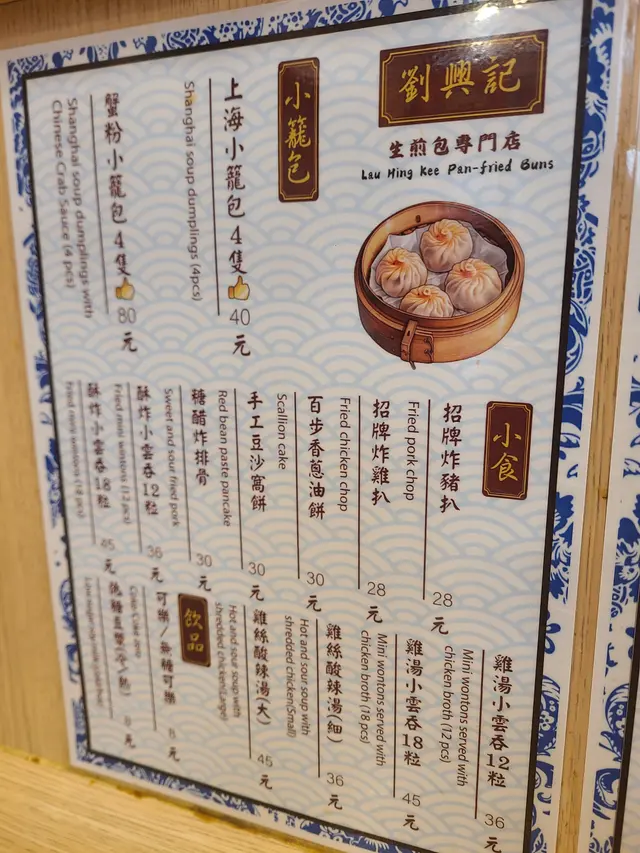 劉興記
生煎包專門店
Lau Hing Kee Pan-fried Buns
小籠包
上海小籠包4隻👍40元
Shanghai soup dumplings (4pcs)
蟹粉小籠包4隻👍80元
Shanghai soup dumplings with
Chinese Crab Sauce (4 pcs)
小食
招牌炸豬扒 28元
Fried pork chop
招牌炸雞扒 28元
Fried chicken chop
百步香蔥油餅 30元
Scallion cake
手工豆沙窩餅 30元
Red bean paste pancake
糖醋炸排骨 30元
Sweet and sour fried pork
酥炸小雲吞12粒 36元
Fried mini wontons (12 pcs)
酥炸小雲吞18粒 45元
Fried mini wontons (18 pcs)
雞湯小雲吞12粒 36元
Mini wontons served with
chicken broth (12 pcs)
雞湯小雲吞18粒 45元
Mini wontons served with
chicken broth (18 pcs)
雞絲酸辣湯(細) 36元
Hot and sour soup with
shredded chicken(Small)
雞絲酸辣湯(大) 45元
Hot and sour soup with
shredded chicken(Large)
飲品
可樂/無糖可樂 8元
Coke/Coke zero
低糖豆漿(冷/熱) 8元